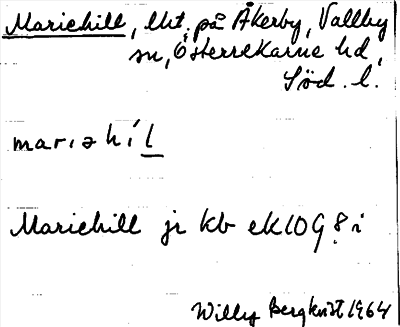 Mariehill, lht. på Åkerby, Vallby
sn, Österrekarne hd,
Söd. l.
mariəhíl
Mariehill jr kb ek 10 G 8 i
Willy Bergkvist 1964